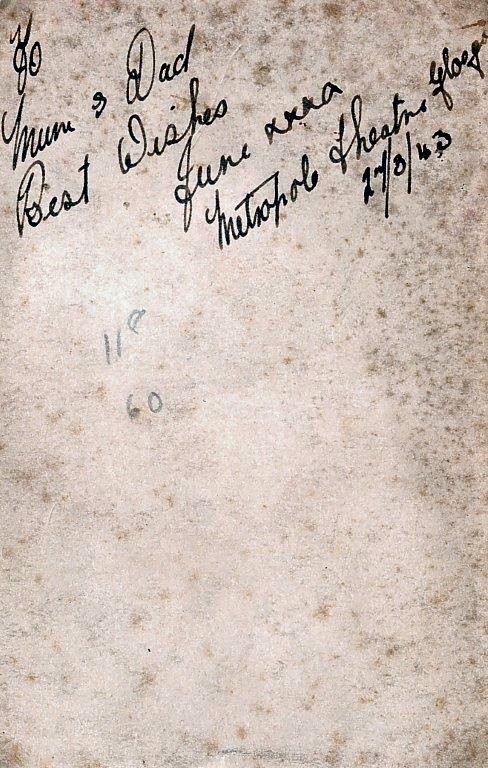 To
Mum & Dad
Best Wishes
June xxxx
Metropole Theatre Glasg
27/3/43
11
60